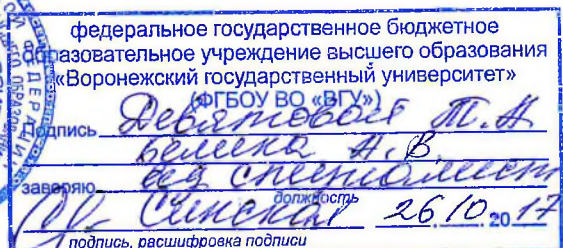 федеральное государственное бюджетное
образовательное учреждение высшего образования
«Воронежский государственный университет»
(ФГБОУ ВО «ВГУ»)
Подпись Девятовой Т.А
Белика А.В.
заверяю вед специалист
должность
Синская 26/10.2017
подпись, расшифровка подписи